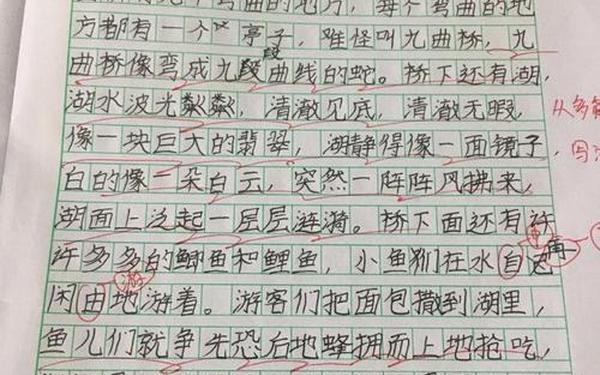 有九个弯曲的地方,每个弯曲的地
方都有一个 亭子,难怪叫九曲桥,九
曲桥像弯成九段曲线的蛇。桥下还有湖,
湖水波光粼粼,清澈见底,清澈无暇,
像一块巨大的翡翠,湖静得像一面镜子,
白的像一朵白云,突然一阵阵风拂来,
湖面上泛起一层层涟漪。桥下面还有许
许多多的鲫鱼和鲤鱼,小鱼们在水自
闲由地游着。游客们把面包撒到湖里,
鱼儿们就争先恐后地蜂拥而上地抢吃,